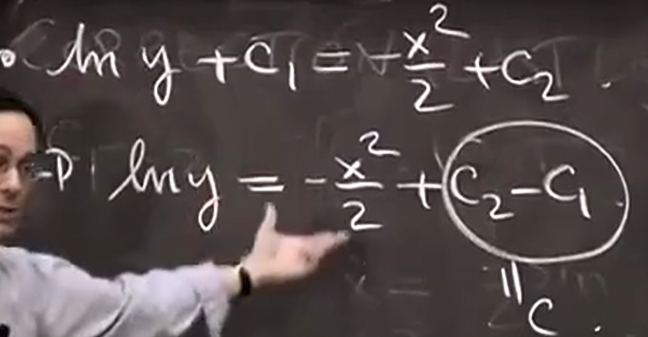 ln y + C₁ = -x²/2 + C₂.
ln y = -x²/2 + C₂ - C₁
‖
C.